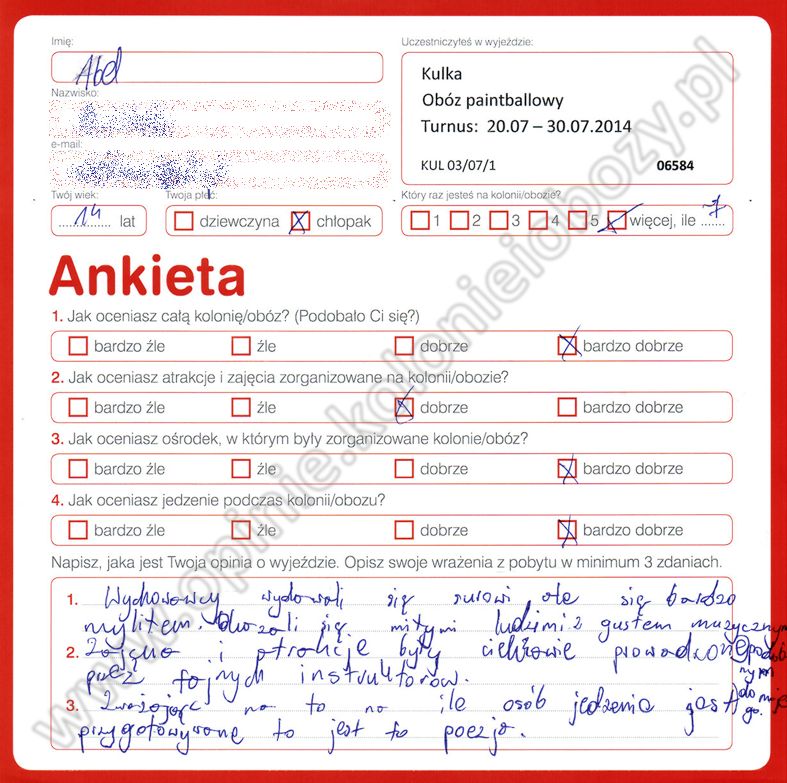 Imię:
Abel
Uczestniczyłeś w wyjeździe:
Kulka
Obóz paintballowy
Turnus: 20.07 – 30.07.2014
KUL 03/07/1 06584
Nazwisko:
e-mail:
Twój wiek:
14 lat
Twoja płeć:
dziewczyna chłopak
Który raz jesteś na kolonii/obozie?
1 2 3 4 5 więcej, ile 7
Ankieta
1. Jak oceniasz całą kolonię/obóz? (Podobało Ci się?)
bardzo źle źle dobrze bardzo dobrze
2. Jak oceniasz atrakcje i zajęcia zorganizowane na kolonii/obozie?
bardzo źle źle dobrze bardzo dobrze
3. Jak oceniasz ośrodek, w którym były zorganizowane kolonie/obóz?
bardzo źle źle dobrze bardzo dobrze
4. Jak oceniasz jedzenie podczas kolonii/obozu?
bardzo źle źle dobrze bardzo dobrze
Napisz, jaka jest Twoja opinia o wyjeździe. Opisz swoje wrażenia z pobytu w minimum 3 zdaniach.
1. Wychowawcy wydawali się surowi ale się bardzo
myliłem. Okazali się miłymi ludźmi z gustem muzycznym
podobnym do mojego.
2. Zajęcia i atrakcje były ciekawie prowadzone
przez fajnych instruktorów.
3. Zważając na to na ile osób jedzenia jest
przygotowywane to jest to poezja.
www.opinie.kolonieiobozy.pl